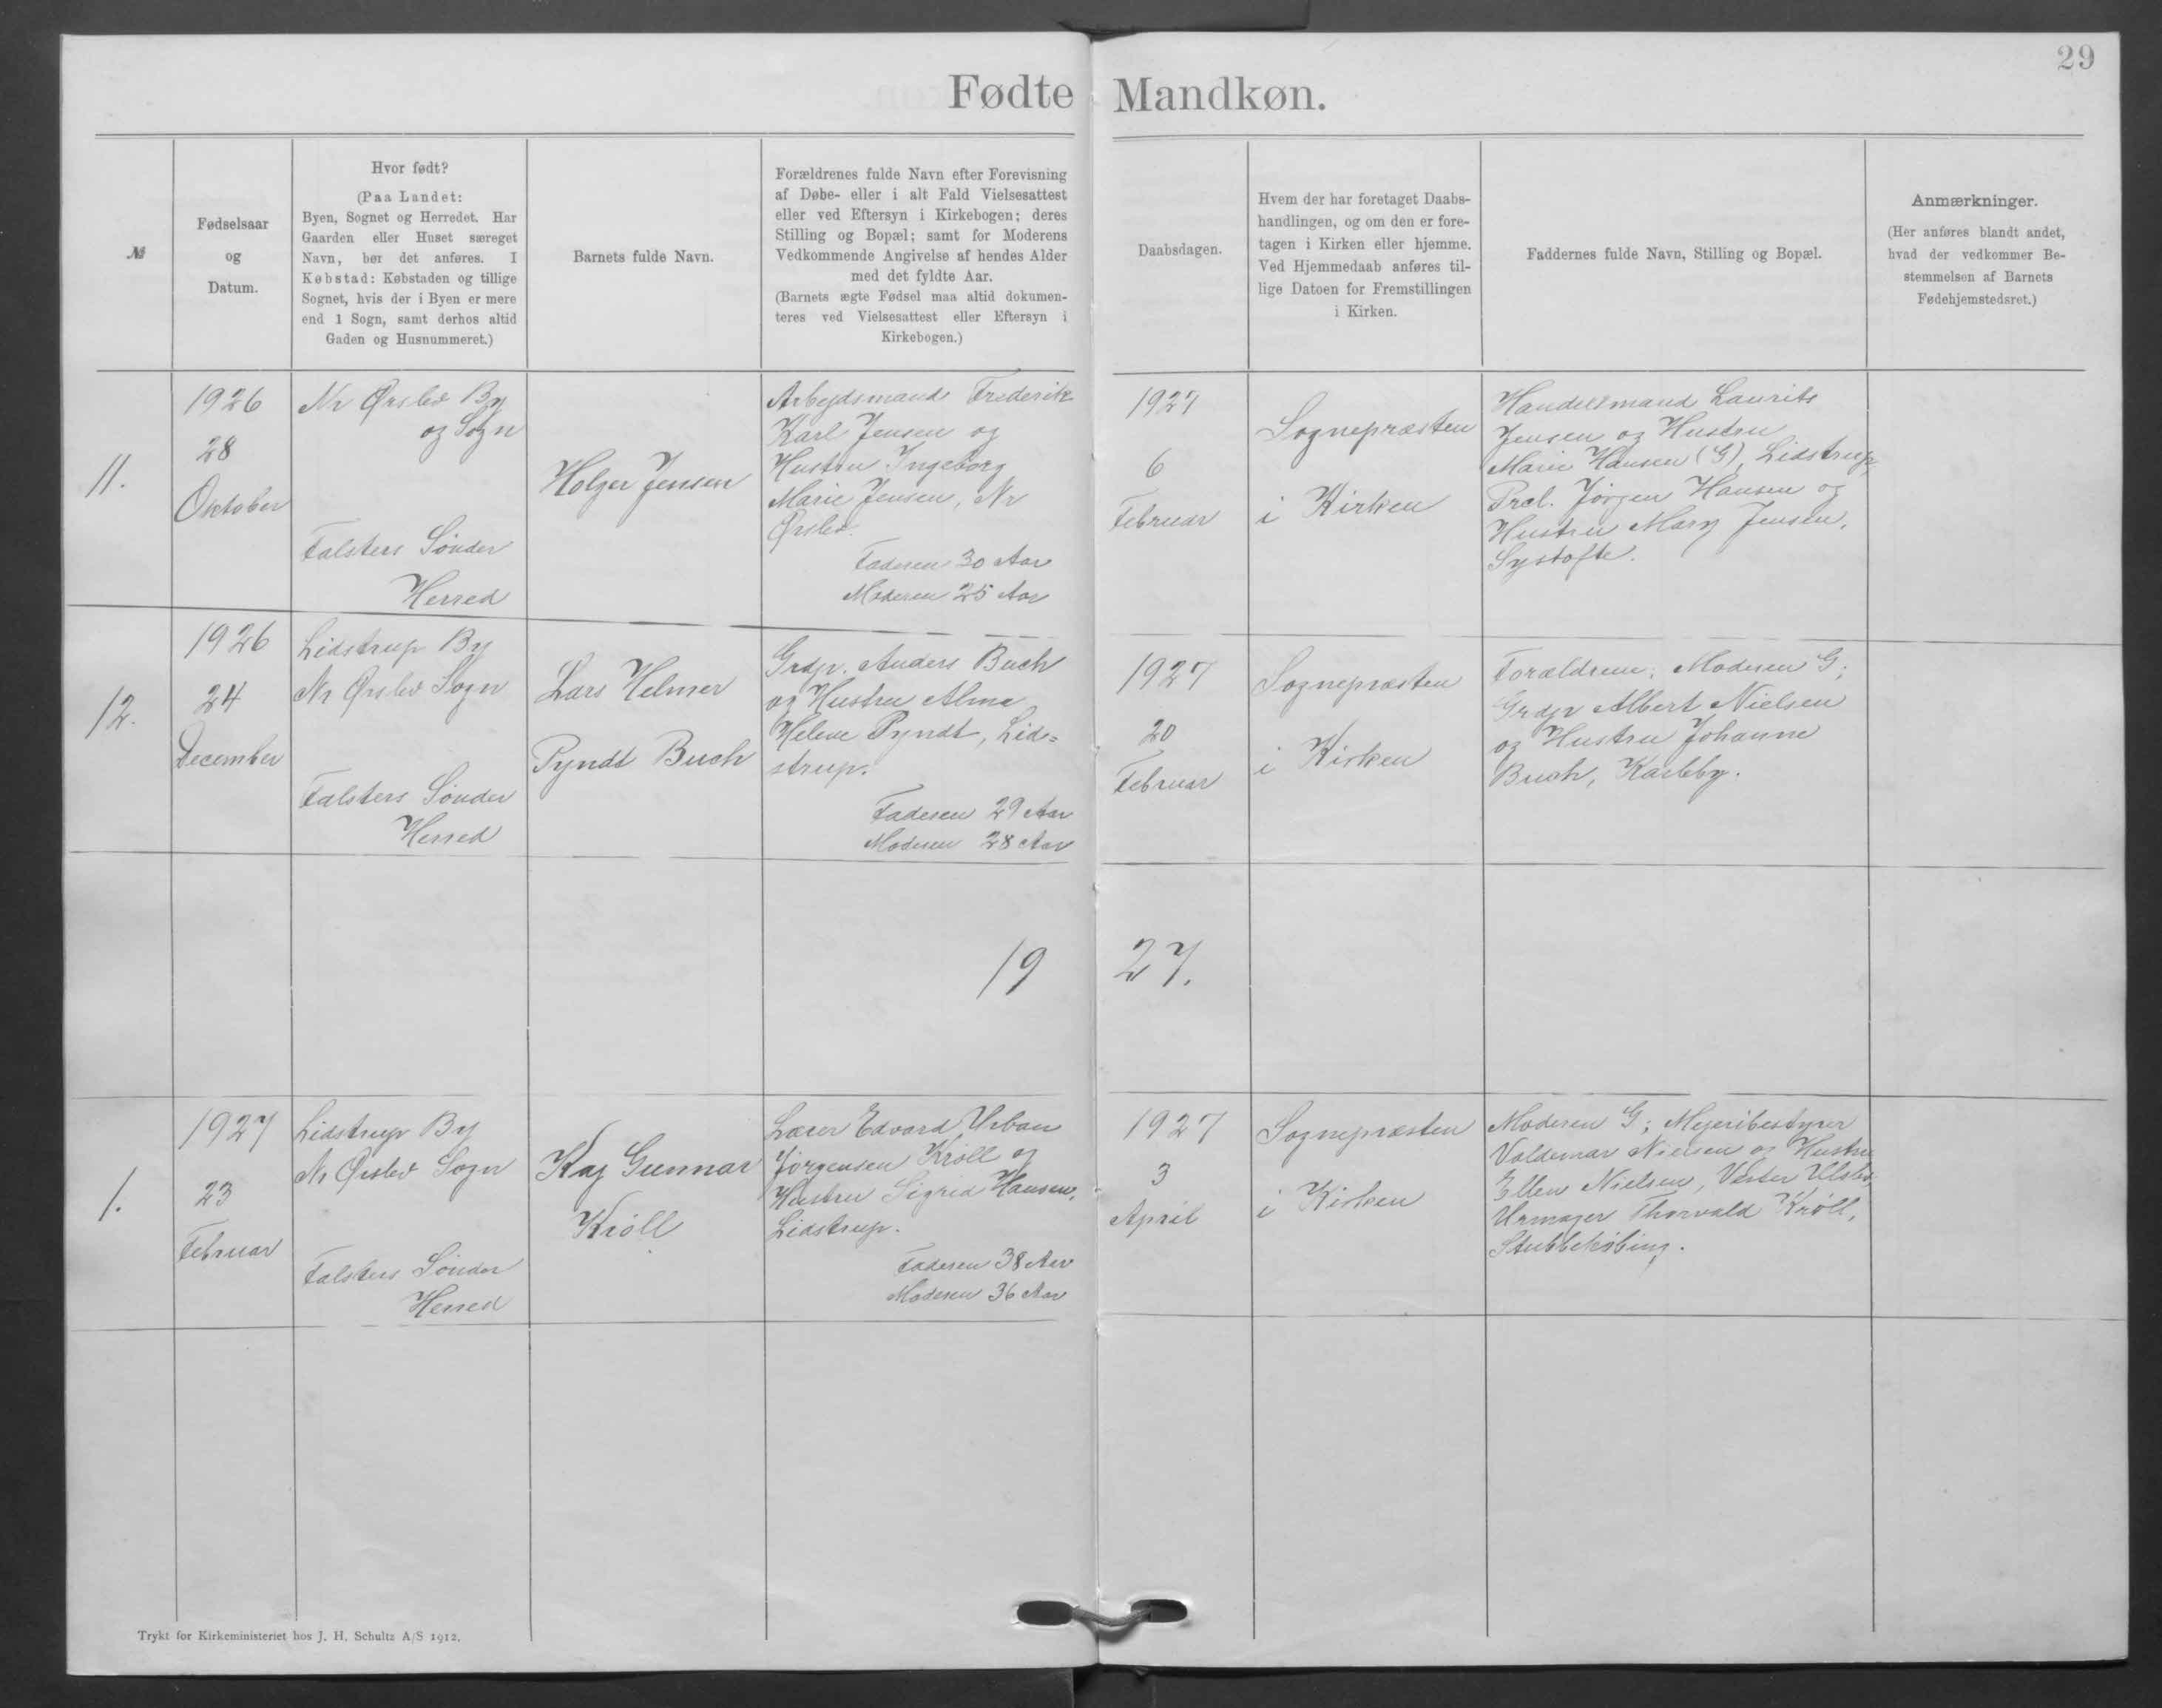 29
Fødte Mandkøn.
№
Fødselsaar
og
Datum.
Hvor født?
(Paa Landet:
Byen, Sognet og Herredet. Har
Gaarden eller Huset særeget
Navn, bør det anføres. I
Købstad: Købstaden og tillige
Sognet, hvis der i Byen er mere
end 1 Sogn, samt derhos altid
Gaden og Husnummeret.)
Barnets fulde Navn.
Forældrenes fulde Navn efter Forevisning
af Døbe- eller i alt Fald Vielsesattest
eller ved Eftersyn i Kirkebogen; deres
Stilling og Bopæl; samt for Moderens
Vedkommende Angivelse af hendes Alder
med det fyldte Aar.
(Barnets ægte Fødsel maa altid dokumen-
teres ved Vielsesattest eller Eftersyn i
Kirkebogen.)
Daabsdagen.
Hvem der har foretaget Daabs-
handlingen, og om den er fore-
tagen i Kirken eller hjemme.
Ved Hjemmedaab anføres til-
lige Datoen for Fremstillingen
i Kirken.
Faddernes fulde Navn, Stilling og Bopæl.
Anmærkninger.
(Her anføres blandt andet,
hvad der vedkommer Be-
stemmelsen af Barnets
Fødehjemstedsret.)
11.
1926
28
Oktober
Nr Ørslev By
og Sogn
Falsters Sønder
Herred
Holger Jensen
Arbejdsmand Frederik
Karl Jensen og
Hustru Ingeborg
Marie Jensen, Nr
Ørslev.
Faderen 30 Aar
Moderen 25 Aar
1927
6
Februar
Sognepræsten
i Kirken
Handelsmand Laurits
Jensen og Hustru
Marie Hansen (G), Lidstrup,
Prcl. Jørgen Hansen og
Hustru Mary Jensen,
Systofte.
12.
1926
24
December
Lidstrup By
Nr Ørslev Sogn
Falsters Sønder
Herred
Lars Helmer
Pyndt Buch
Grdjr. Anders Buch
og Hustru Alma
Helene Pyndt, Lid=
strup.
Faderen 29 Aar
Moderen 28 Aar
1927
20
Februar
Sognepræsten
i Kirken
Forældrene; Moderen G;
Grdjr Albert Nielsen
og Hustru Johanne
Buch, Karleby.
19 27.
1.
1927
23
Februar
Lidstrup By
Nr Ørslev Sogn
Falsters Sønder
Herred
Kaj Gunnar
Krøll
Lærer Edvard Urban
Jørgensen Krøll og
Hustru Sigrid Hansen,
Lidstrup.
Faderen 38 Aar
Moderen 36 Aar
1927
3
April
Sognepræsten
i Kirken
Moderen G; Mejeribestyrer
Valdemar Nielsen og Hustru
Ellen Nielsen, Vester Ulslev,
Urmager Thorvald Krøll,
Stubbekøbing.
Trykt for Kirkeministeriet hos J. H. Schultz A/S 1912.